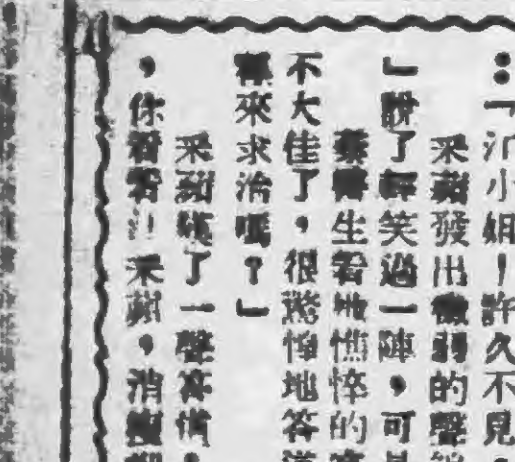 ：「江小姐！許久不見，
采蘋發出微弱的聲
」說了輕笑過一陣，可
葉醫生看她憔悴的
不大佳了，很驚悼地答道
樣來求治嗎？」
采蘋嘆了一聲答
，你看看！采蘋，消瘦